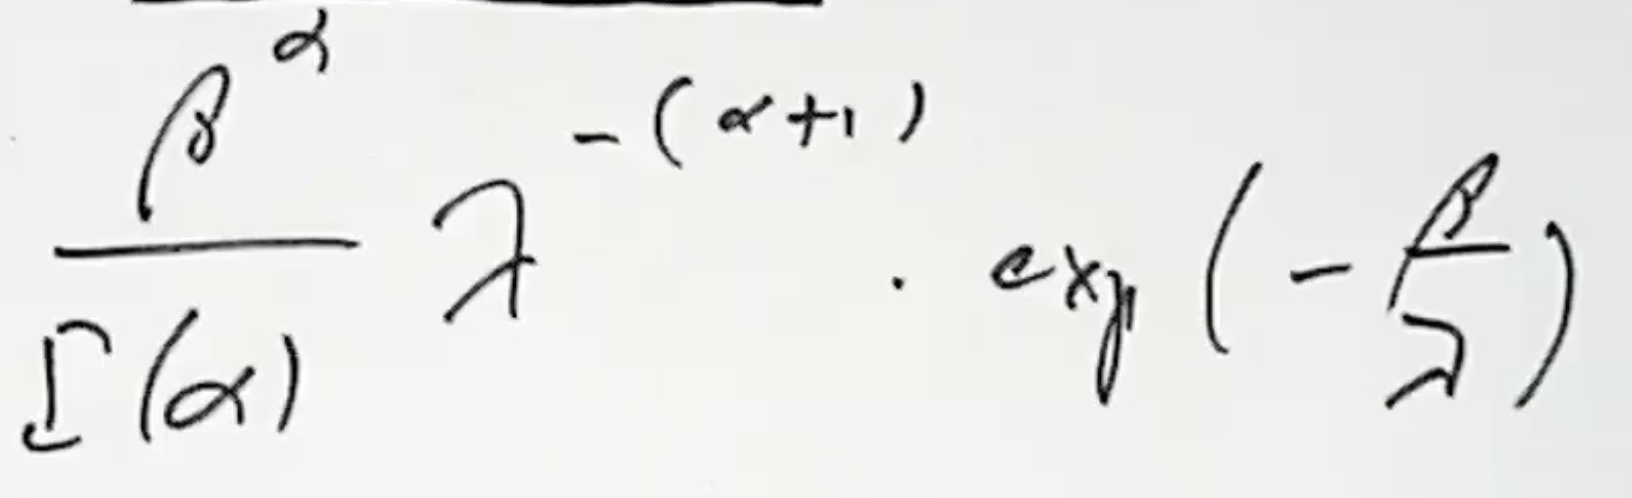 \frac{\beta^{\alpha}}{\Gamma(\alpha)} \lambda^{-(\alpha+1)} \cdot \exp\left(-\frac{\beta}{\lambda}\right)